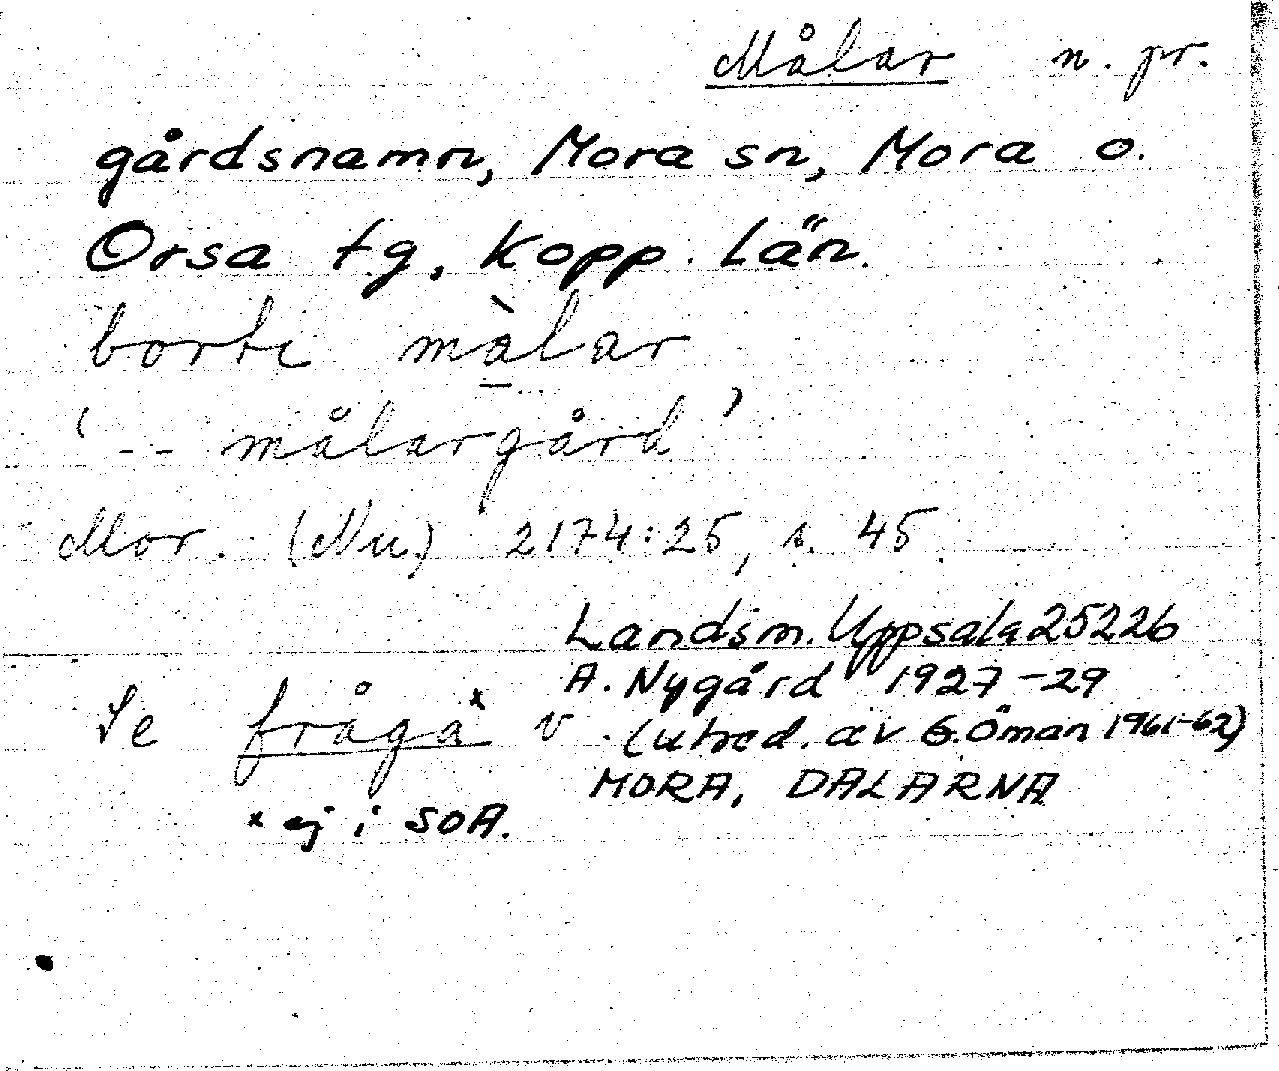 Målar n. pr.
gårdsnamn, Mora sn, Mora o.
Orsa tg, Kopp. län.
borti målar
'-- målargård'
Mor. (Nu) 2174:25, s. 45
Landsm. Uppsala 25226
A. Nygård 1927-29
Se fråga x v (utred. av G. Öman 1961-62)
MORA, DALARNA
x ej i SOA.